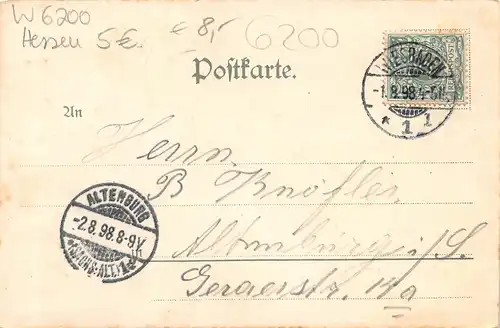 W 6200
Hessen 5€. € 8,- 6200
Postkarte.
WIESBADEN
-1.8.98.4-5N.
* 1 1
An
Herrn
B Knöfler
ALTENBURG
-2.8.98.8-9V.
*(SACHS.-ALT.)1d*
Altenburg i/S.
Geraerstr. 14a